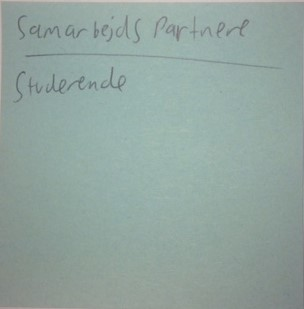 Samarbejds Partnere
Studerende